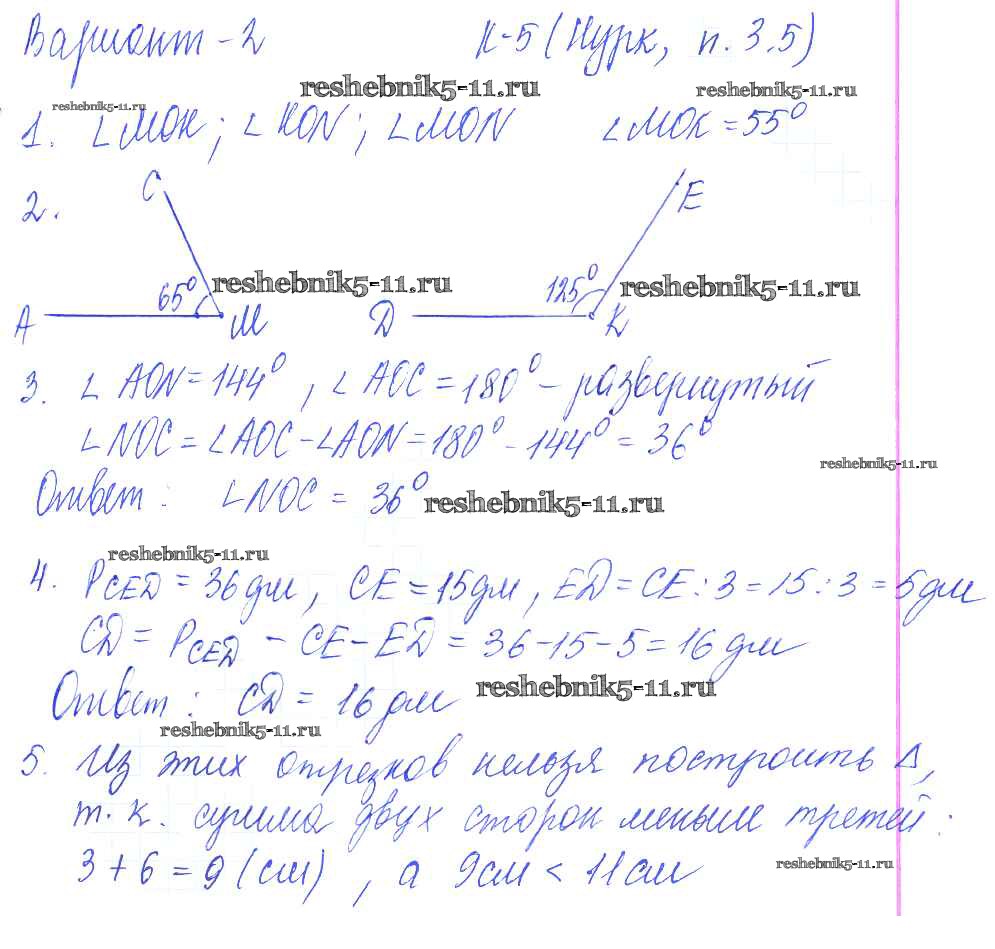 Вариант - 2 К-5 (Нурк, п. 3.5)
reshebnik5-11.ru reshebnik5-11.ru reshebnik5-11.ru
1. ∠MOK; ∠KON; ∠MON ∠MOK = 55°
2. C E
65° reshebnik5-11.ru 125° reshebnik5-11.ru
A M D K
3. ∠AON = 144°, ∠AOC = 180° - развернутый
∠NOC = ∠AOC - ∠AON = 180° - 144° = 36°
reshebnik5-11.ru
Ответ: ∠NOC = 36° reshebnik5-11.ru
reshebnik5-11.ru
4. PCED = 36 дм, CE = 15 дм, ED = CE : 3 = 15 : 3 = 5 дм
CD = PCED - CE - ED = 36 - 15 - 5 = 16 дм
Ответ: CD = 16 дм reshebnik5-11.ru
reshebnik5-11.ru
5. Из этих отрезков нельзя построить Δ,
т. к. сумма двух сторон меньше третей:
3 + 6 = 9 (см), а 9 см < 11 см reshebnik5-11.ru